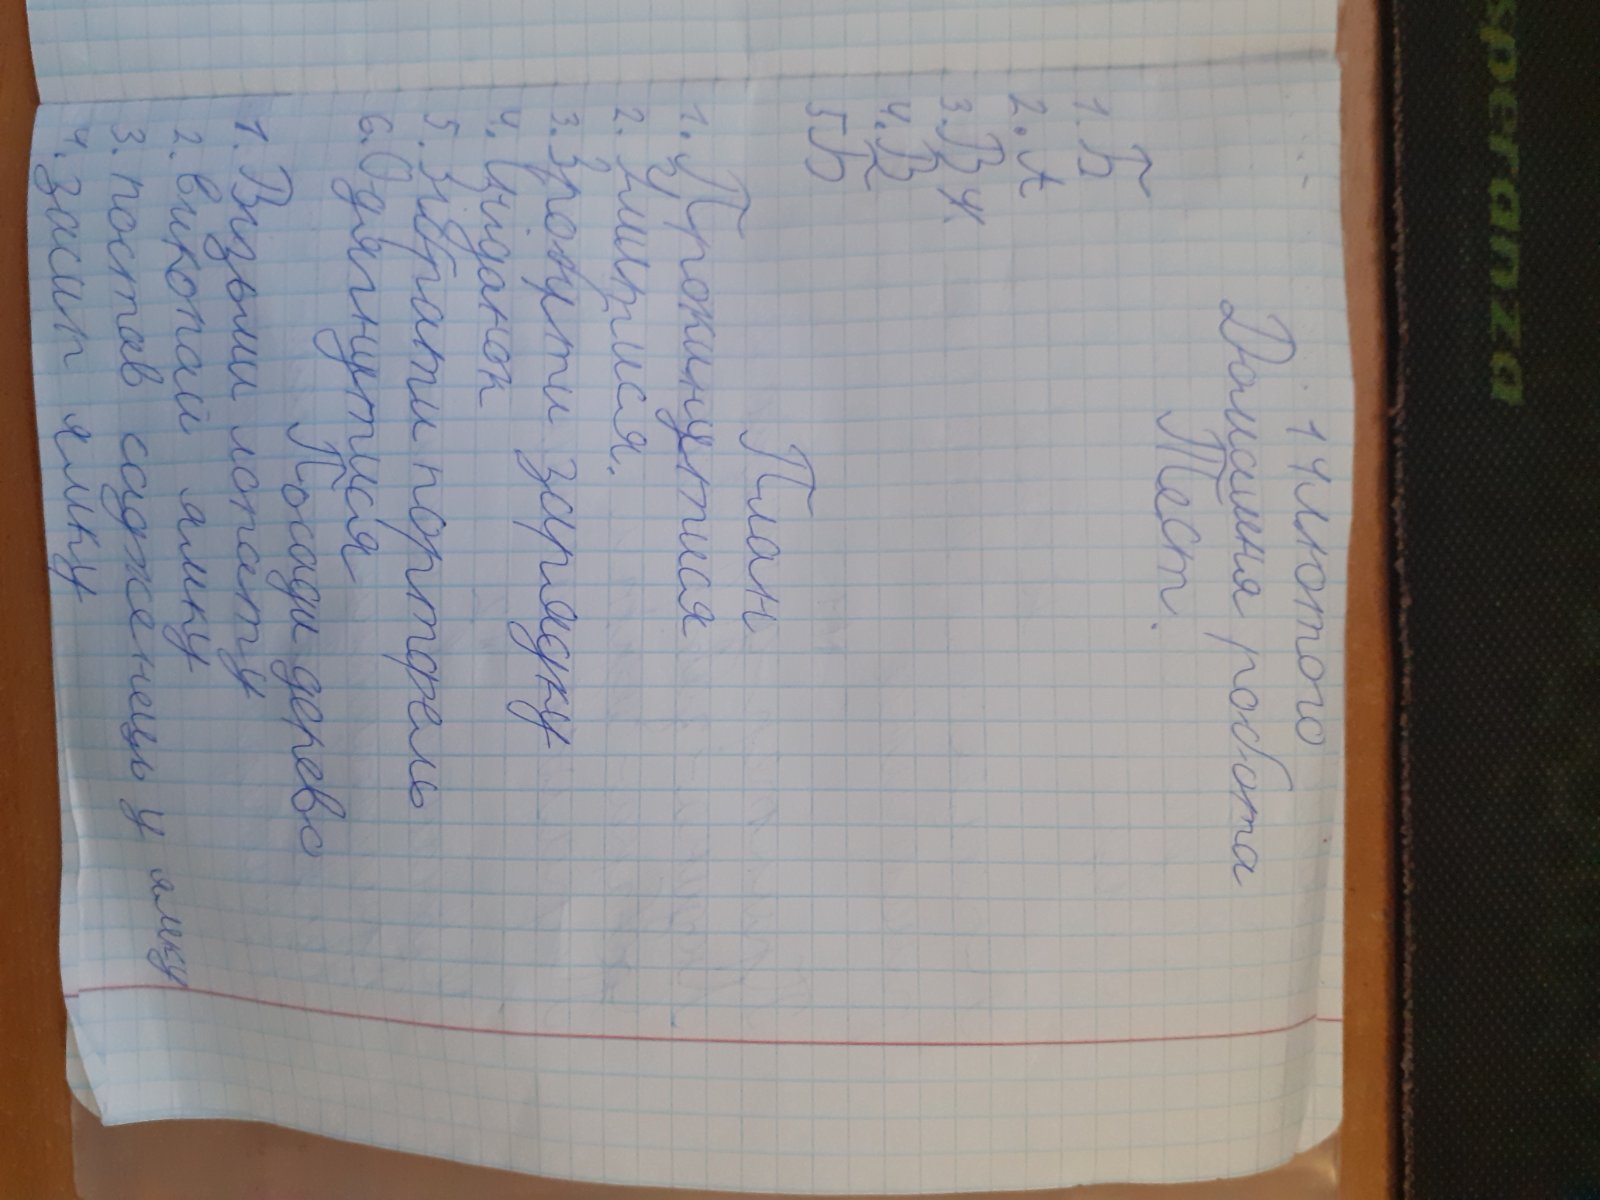 14 лютого
Домашня робота
Тест.
1. Б
2. А
3. В
4. В
5 Б
План
1. Прокинутися
2. Умитися.
3. Зробити зарядку
4. Сніданок
5. Зібрати портфель
6. Одягнутися
Посади дерево
1. Візьми лопату
2. викопай ямку
3. постав саджанець у ямку
4. засип ямку
speranza